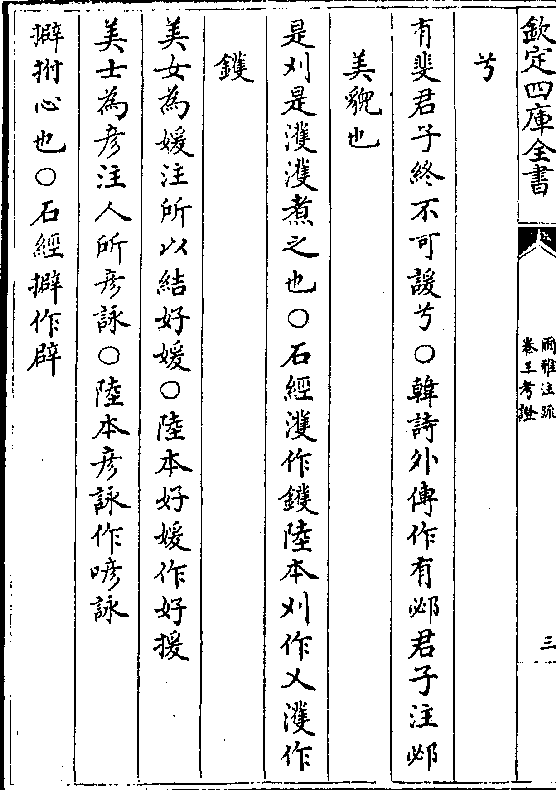 欽定四庫全書
爾雅注疏
卷三考證
三
兮
有斐君子終不可諼兮○韓詩外傳作有邲君子注邲
美貌也
是刈是濩濩煮之也○石經濩作鑊陸本刈作乂濩作
鑊
美女為媛注所以結好媛○陸本好媛作好援
美士為彥注人所彥詠○陸本彥詠作喭詠
擗拊心也○石經擗作辟